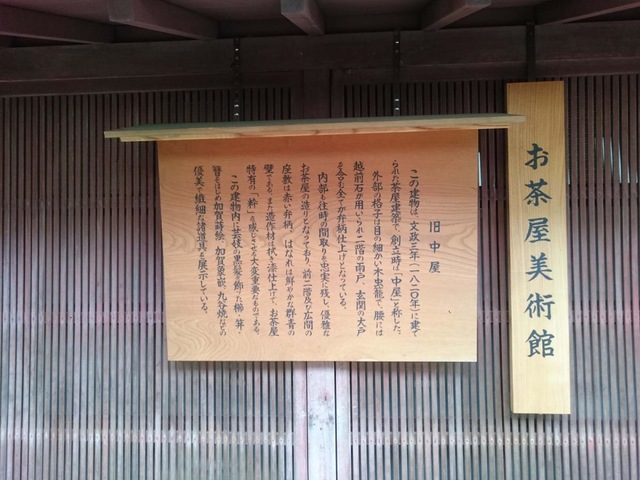 お茶屋美術館
旧中屋
この建物は、文政三年(一八二〇年)に建て
られた茶屋建築で、創立時は「中屋」と称した。
外部の格子は目の細かい木虫籠で、腰には
越前石が用いられ二階の雨戸、玄関の大戸
を含む全てが弁柄仕上げとなっている。
内部も往時の間取りを忠実に残し、優雅な
お茶屋の造りとなっており、前二階及び広間の
座敷は赤い弁柄。はなれは鮮やかな群青の
壁である。また造作材は拭き漆仕上げで、お茶屋
特有の「粋」を感じさせる大変重要なものである。
この建物内に芸妓の黒髪を飾った櫛・笄・
簪をはじめ加賀蒔絵、加賀象嵌、九谷焼などの
優美で繊細な諸道具も展示している。